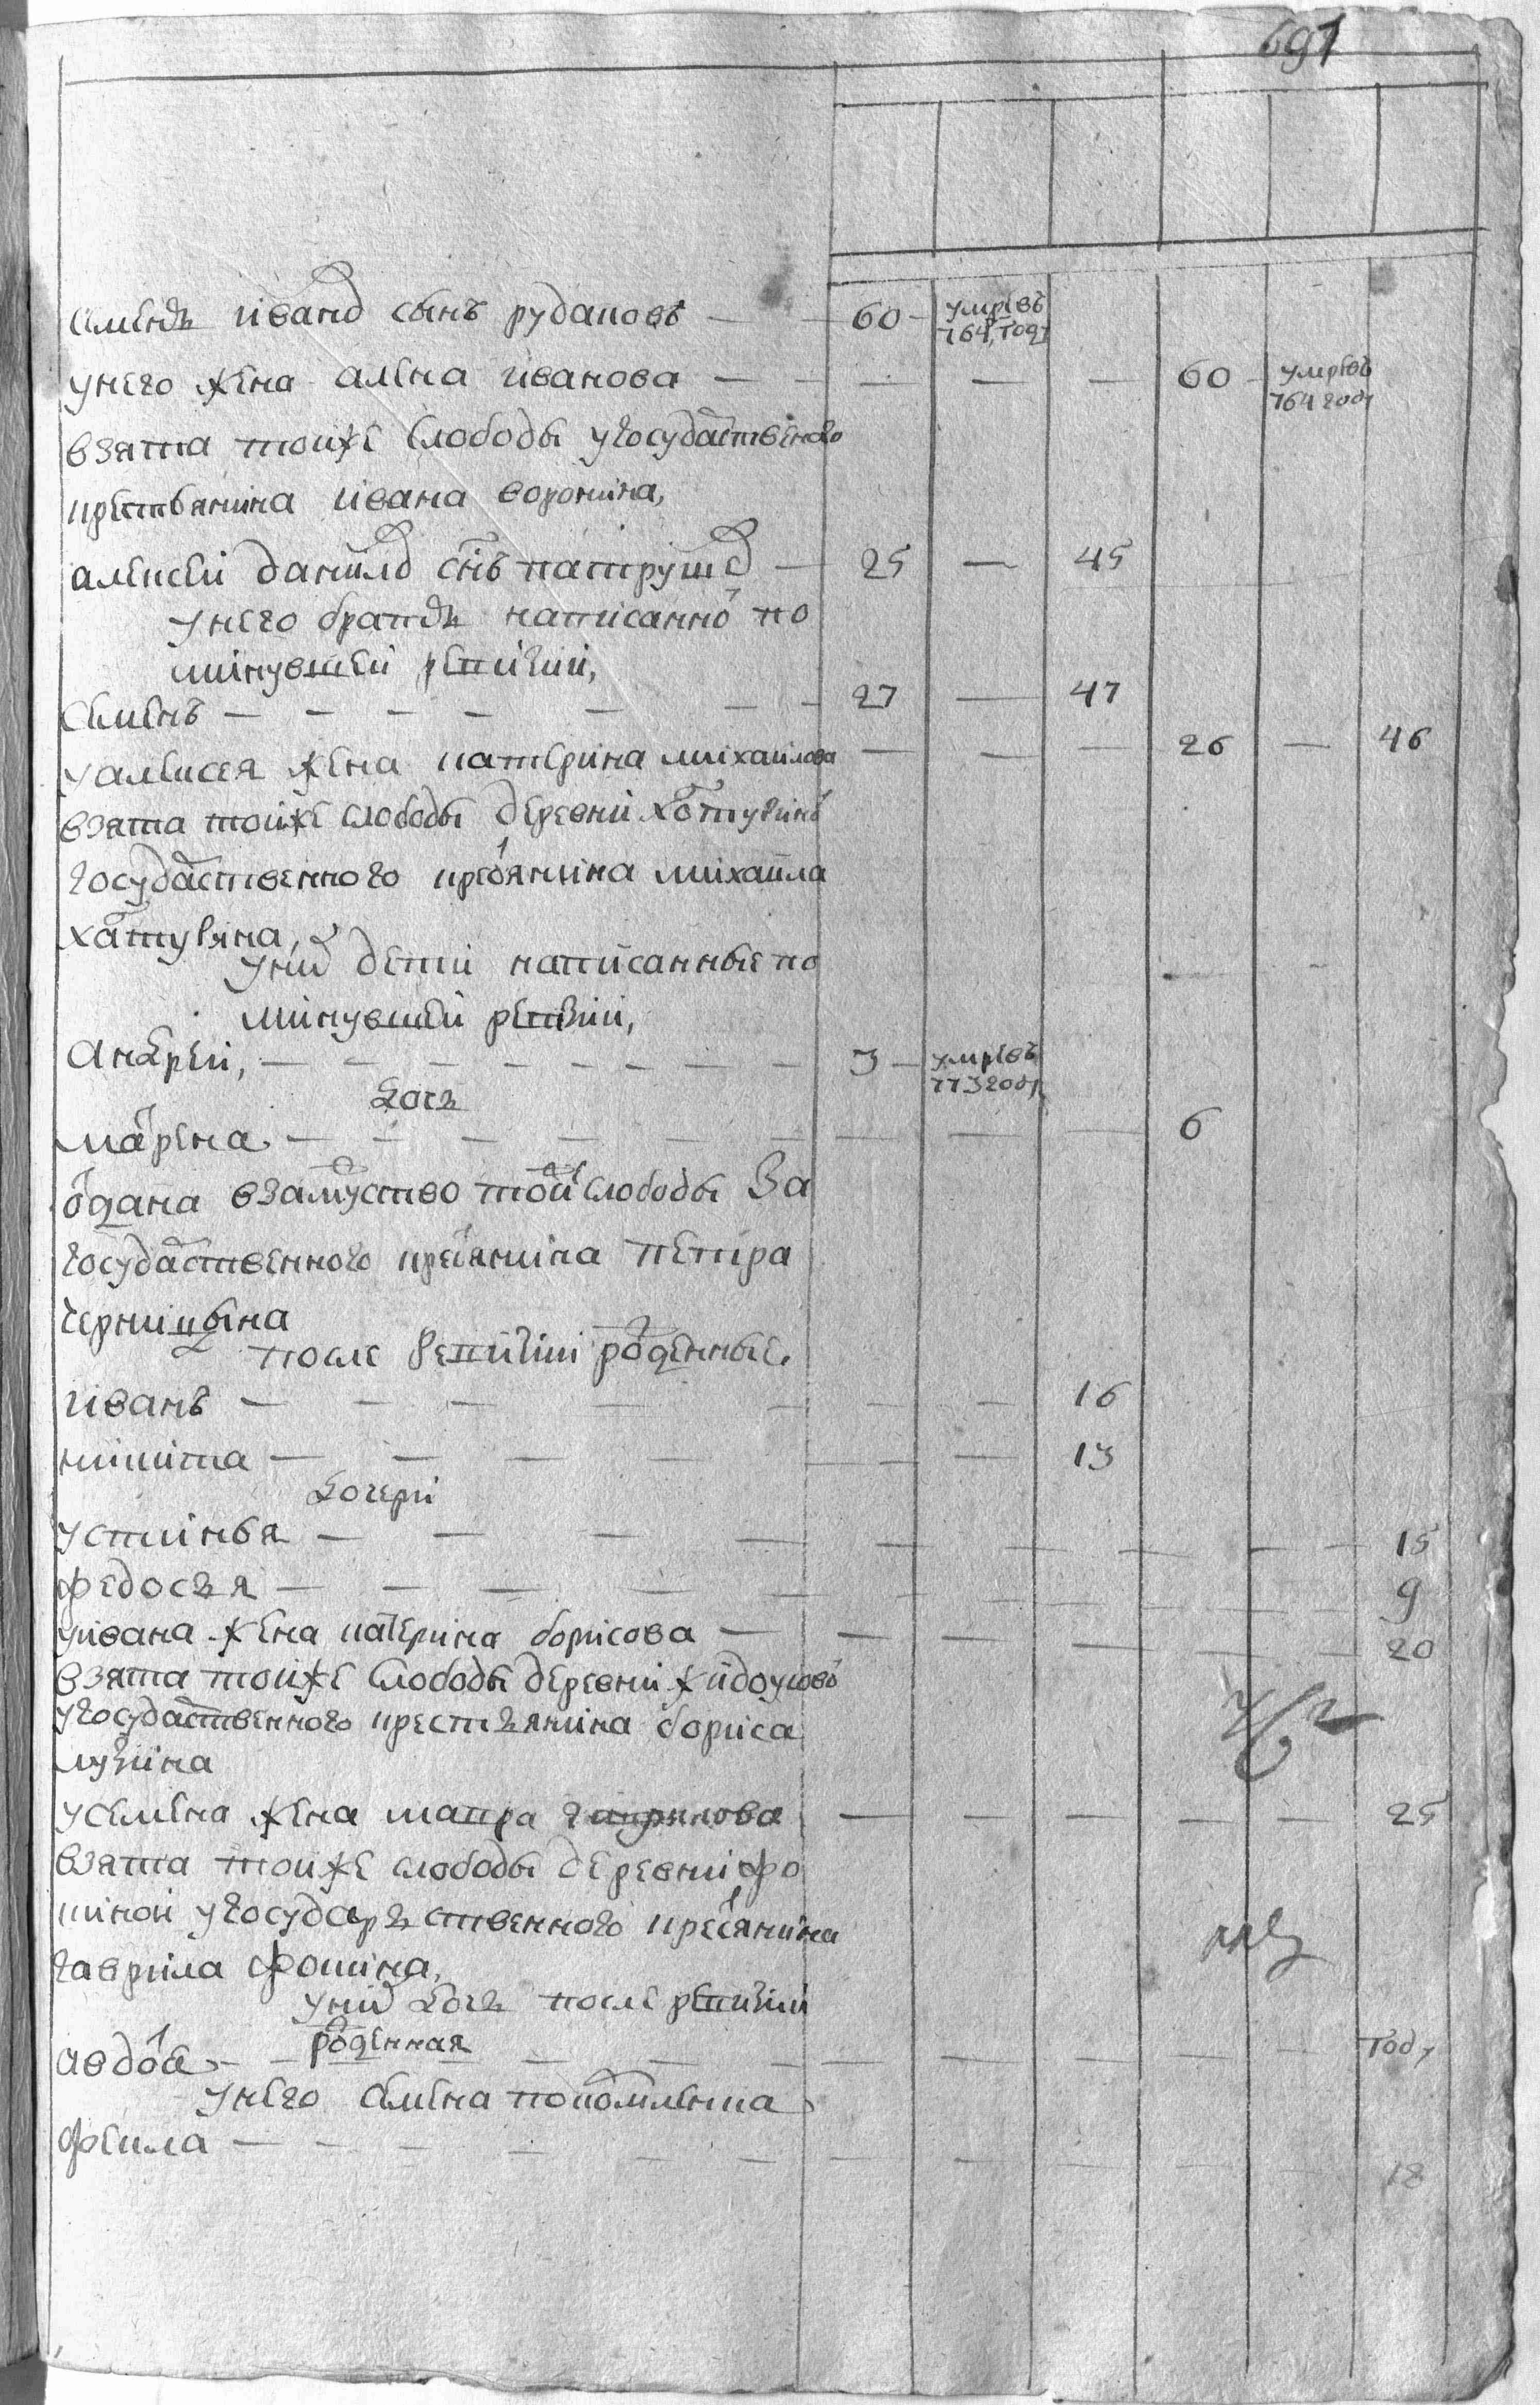 691
Семенъ Иванов сынъ рудаковъ — 60 — умре въ 764 году
У него жена алена иванова — — — — 60 — умре въ 764 году
взята тоиже слободы у государственого
крестьянина ивана воронина,
алексеи данилов снъ патрушев — 25 — 45
У него братъ написанно по
минувшеи ревизии,
Семенъ — — — — 27 — 47
У алексея жена катерина михаилова — — — 26 — 46
взята тоиже слободы деревни хотузино
государственного кресянина михаила
У них дети написанные по
минувшеи ревизии,
Андреи, — — — — 3 — умре въ 773 году
дочь
марена — — — — 6
одана взамуство тоиже слободы За
государственного кресянина петра
черницына
после ревизии роженные.
Иванъ — — — — 16
никита — — — — 13
дочери
устинья — — — — 15
федосья — — — — 9
У ивана жена катерина борисова — — — — 20
взята тоиже слободы деревни
у государственного крестьянина бориса
лузина
У семена жена макра гаврилова — — — — 25
взята тоиже слободы деревни фо
миной у государьственного кресянина
гаврила фомина,
У них дочь после ревизии
роженная
авдотя — — — — году
У него семена
фекла — — — — 18